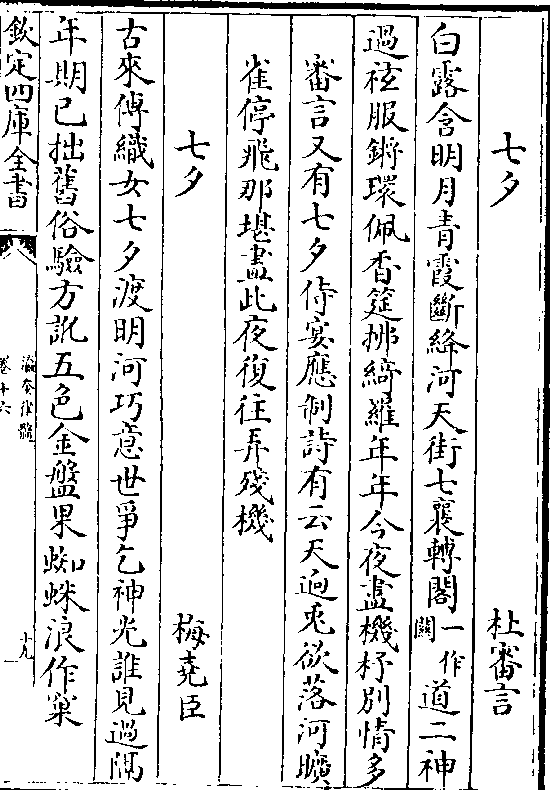 七夕　杜審言
白露含明月青霞斷絳河天街七襄轉閣一作闕道二神
過袨服鏘環佩香筵拂綺羅年年今夜盡機杼別情多
審言又有七夕侍宴應制詩有云天迥兎欲落河曠
雀停飛那堪盡此夜復往弄殘機
七夕　梅堯臣
古來傳織女七夕渡明河巧意世爭乞神光誰見過隔
年期已拙舊俗驗方訛五色金盤果蜘蛛浪作窠
欽定四庫全書
瀛奎律髓
卷十六
十九